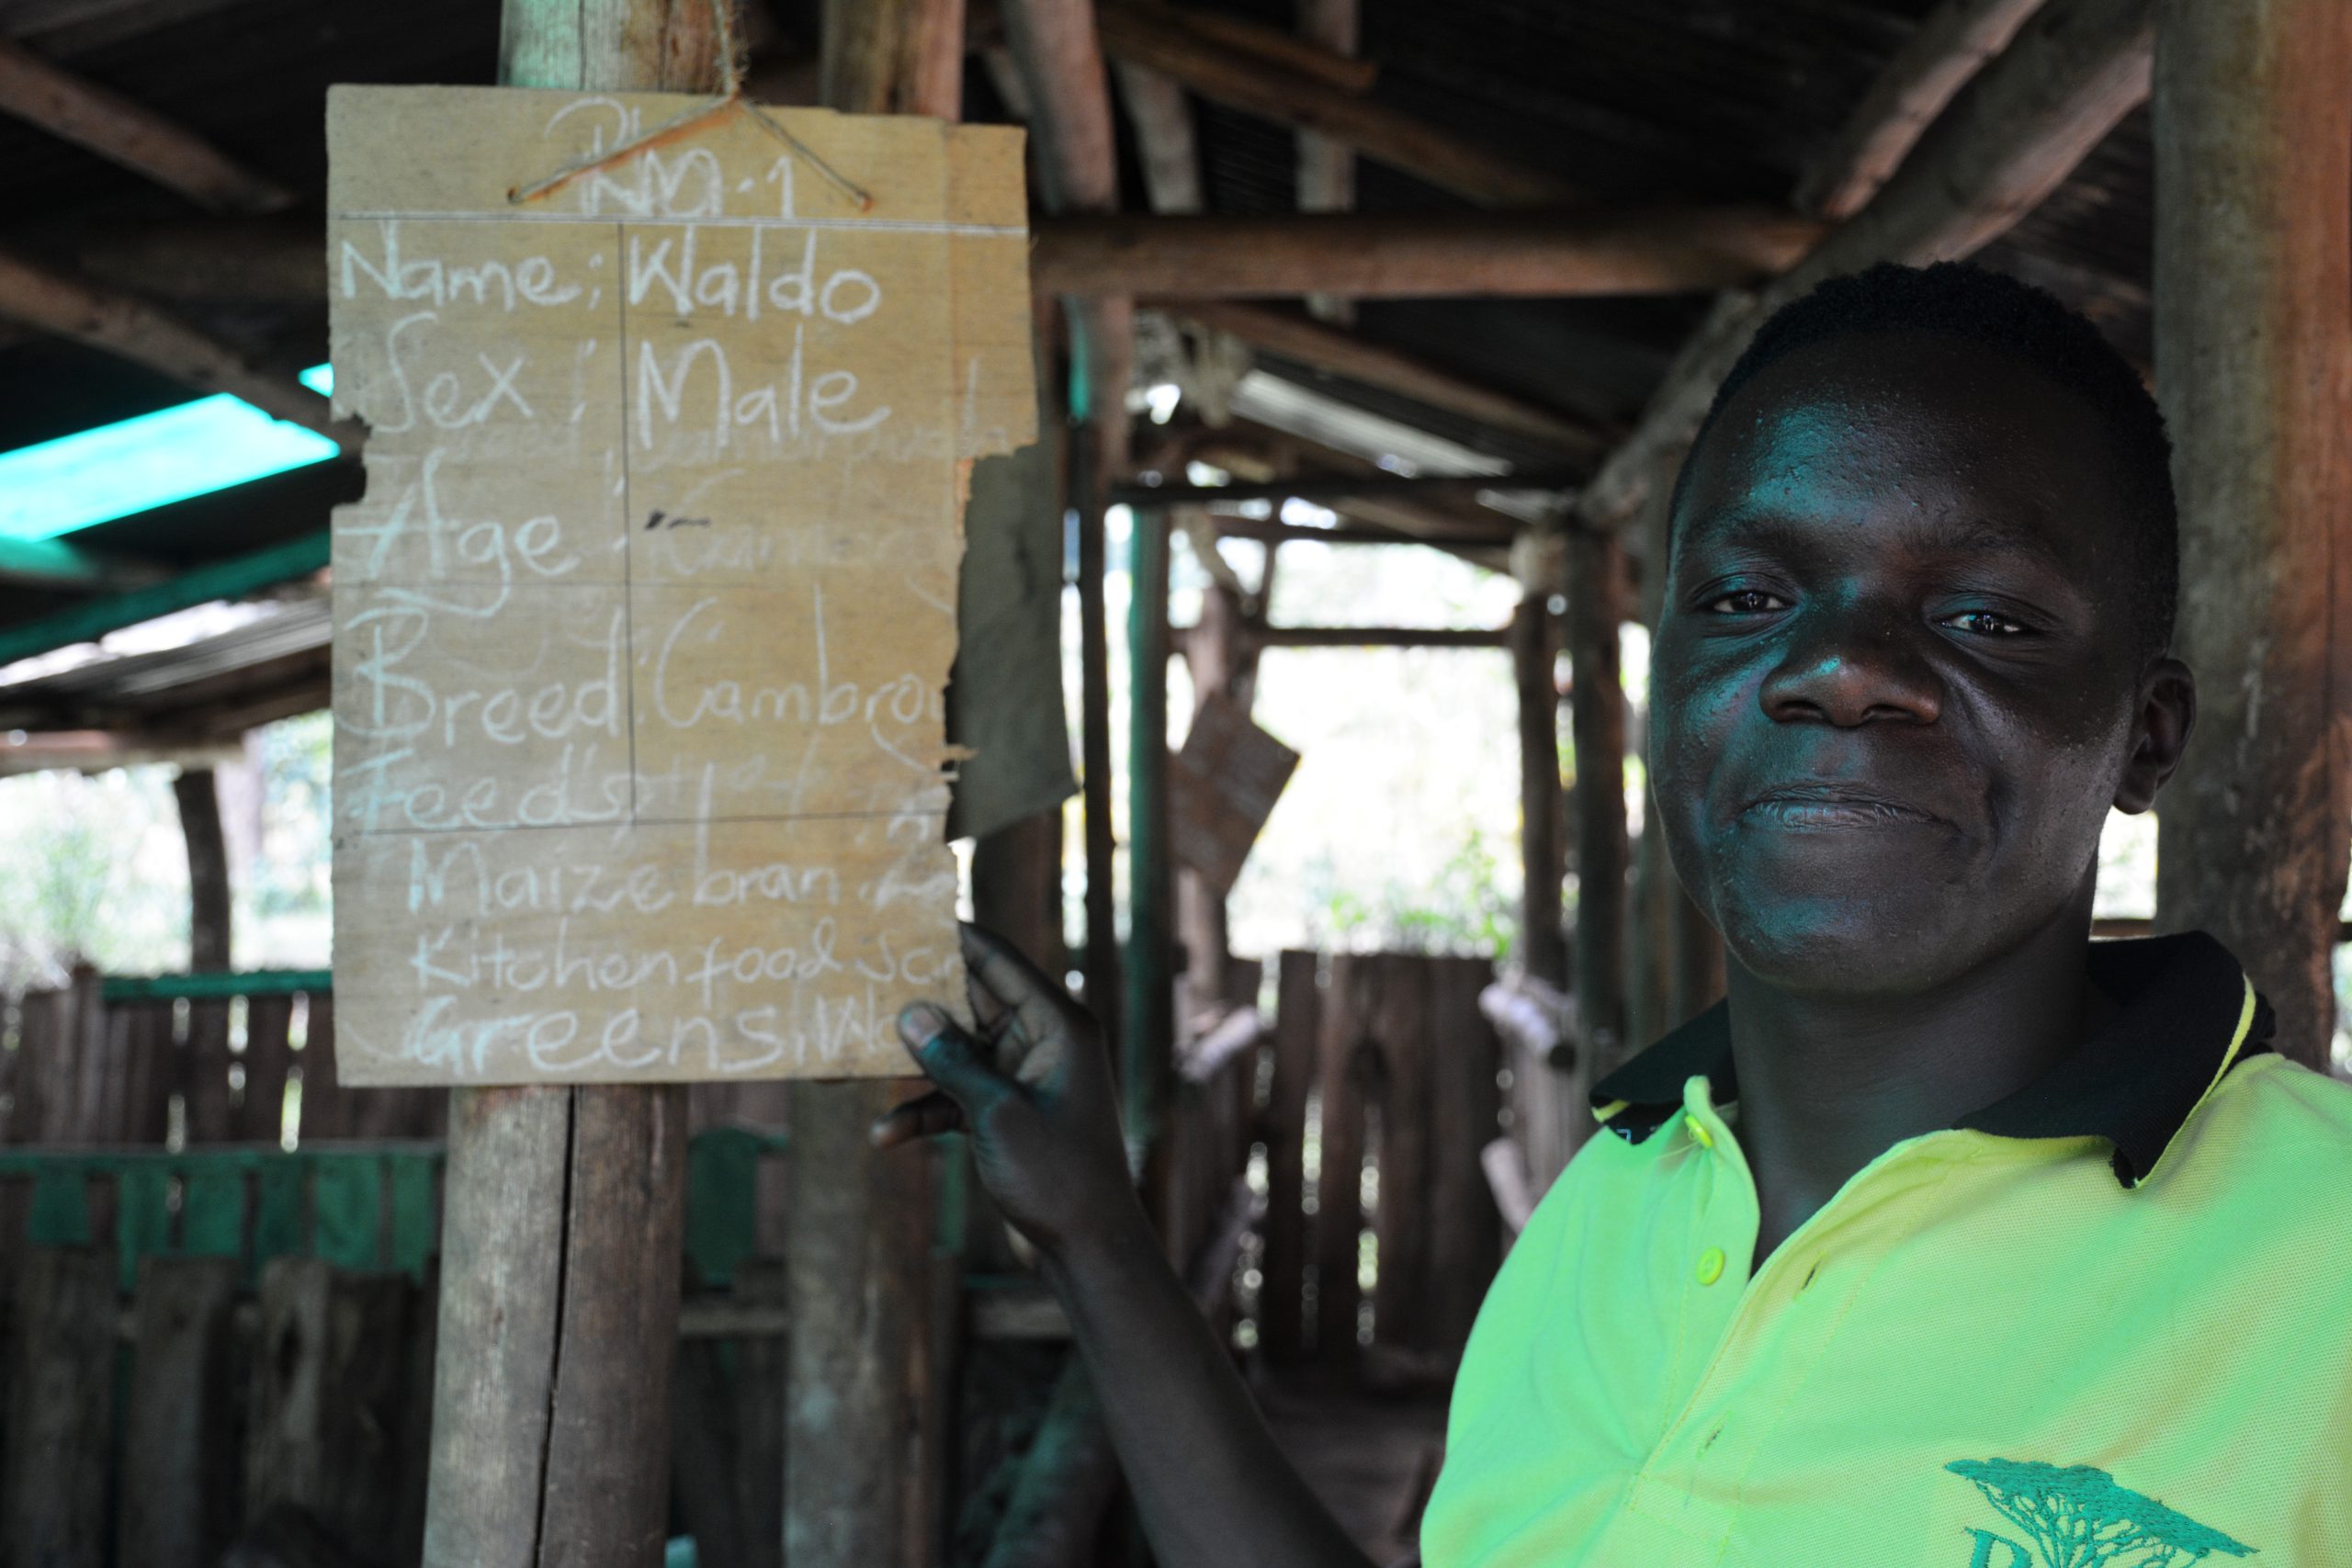 Name; Waldo
Sex; Male
Age:
Breed: Cambro
Feeds:
Maize bran
Kitchen food Sc
Greens